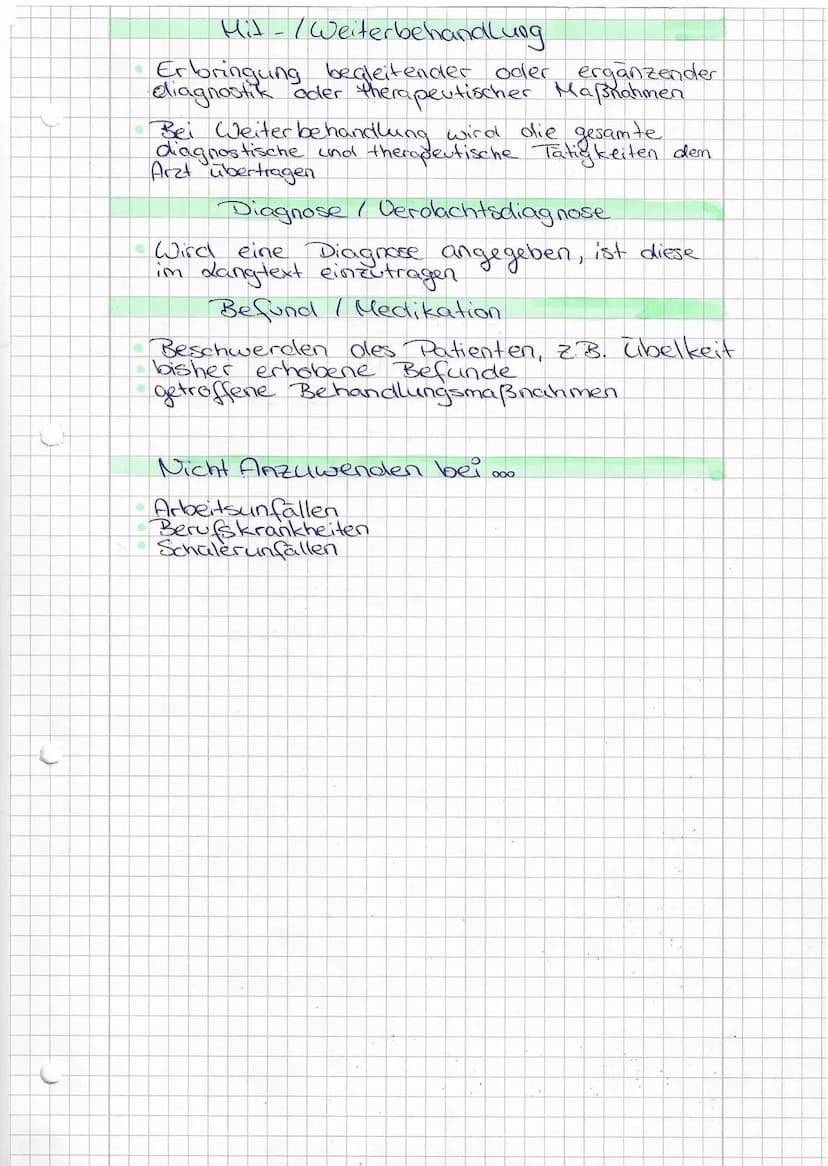 Mit - / Weiterbehandlung
Erbringung begleitender oder ergänzender
diagnostik oder therapeutischer Maßnahmen
Bei Weiterbehandlung wird die gesamte
diagnostische und therapeutische Tätigkeiten dem
Arzt übertragen
Diagnose / Verdachtsdiagnose
Wird eine Diagnose angegeben, ist diese
im Langtext einzutragen
Befund / Medikation
Beschwerden des Patienten, z.B. Übelkeit
bisher erhobene Befunde
getroffene Behandlungsmaßnahmen
Nicht Anzuwenden bei ...
Arbeitsunfällen
Berufskrankheiten
Schülerunfällen